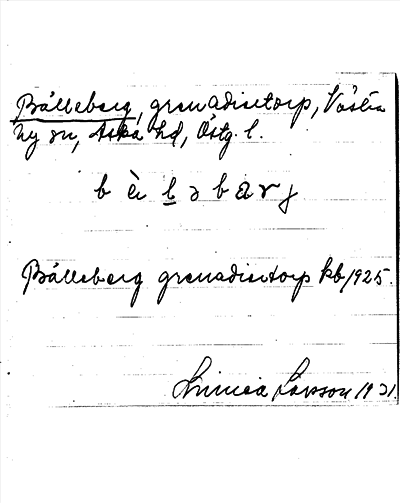 Bålleberg, grenadiertorp, Västra
Ny sn, Aska hd, Östg. l.
Bålleberg grenadiertorp kb 1925.
Linnea Larsson 1931.